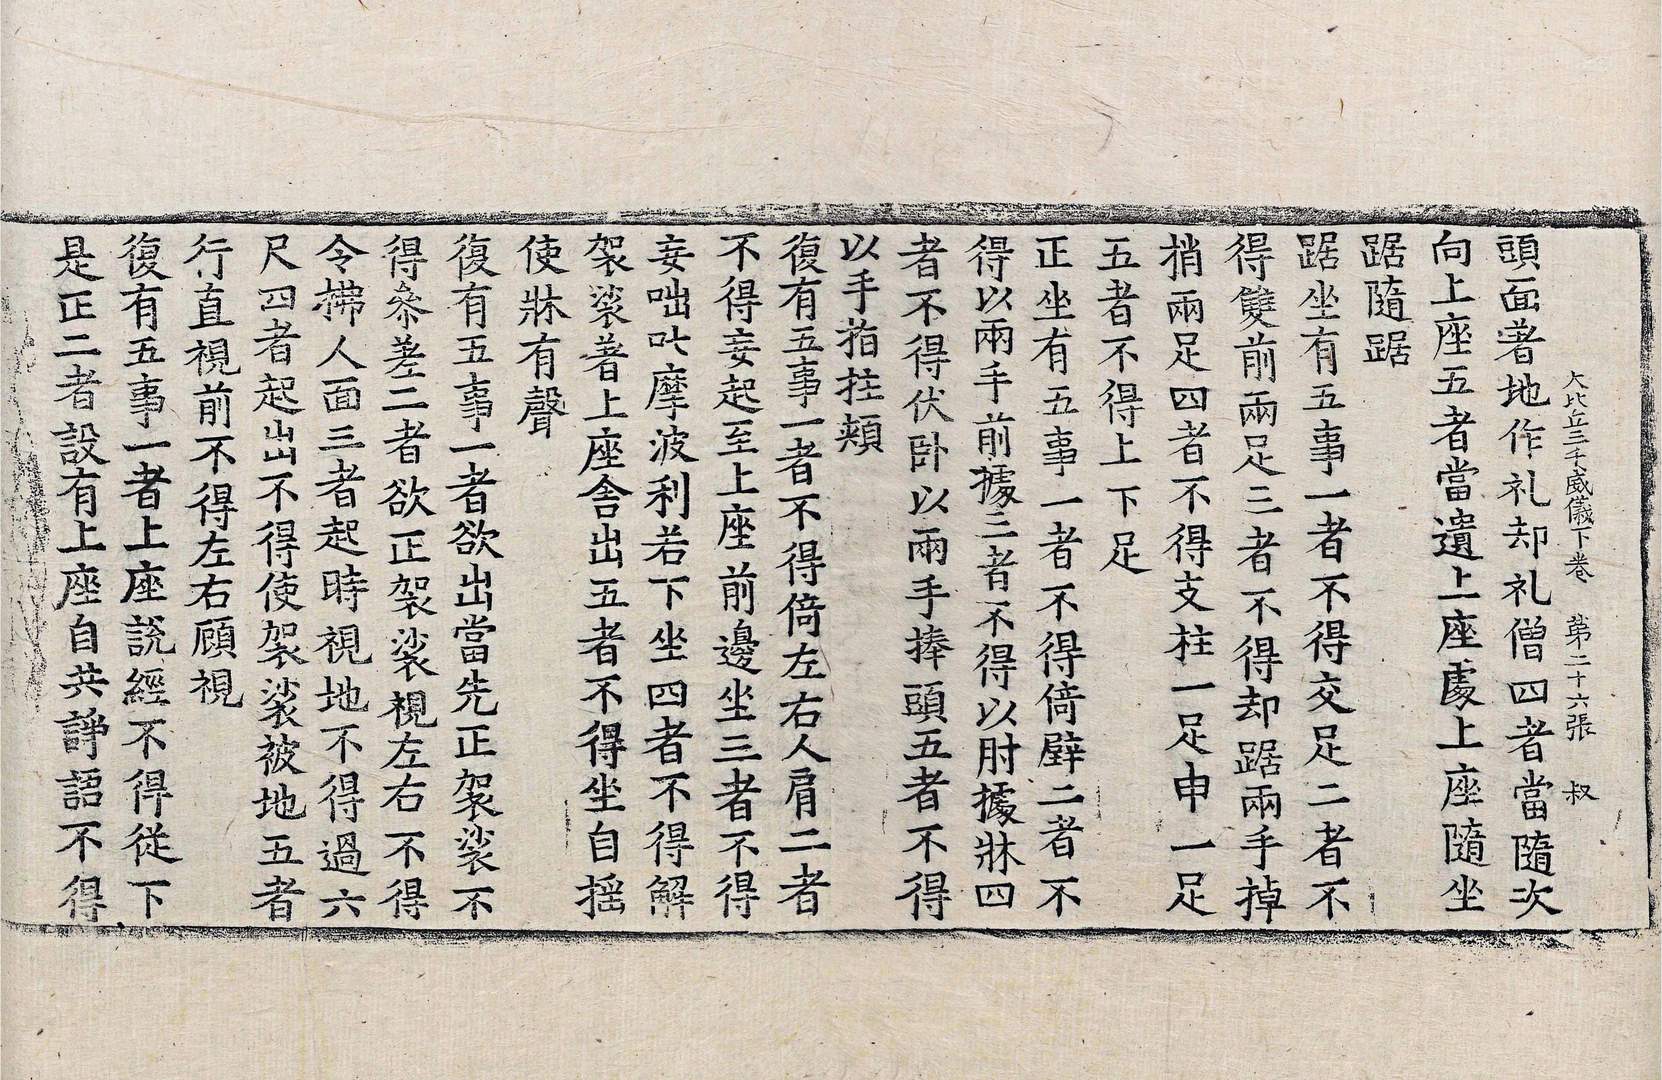 大比丘三千威儀下卷　第二十六張　叔
頭面著地作礼却礼僧四者當隨次
向上座五者當遺上座處上座隨坐
踞隨踞
踞坐有五事一者不得交足二者不
得雙前兩足三者不得却踞兩手掉
捎兩足四者不得支柱一足申一足
五者不得上下足
正坐有五事一者不得倚壁二者不
得以兩手前據三者不得以肘據牀四
者不得伏卧以兩手捧頭五者不得
以手指拄頰
復有五事一者不得倚左右人肩二者
不得妄起至上座前邊坐三者不得
妄咄叱摩波利若下坐四者不得解
袈裟著上座舍出五者不得坐自揺
使牀有聲
復有五事一者欲出當先正袈裟不
得叅差二者欲正袈裟視左右不得
令拂人面三者起時視地不得過六
尺四者起出不得使袈裟被地五者
行直視前不得左右顧視
復有五事一者上座說經不得従下
是正二者設有上座自共諍語不得